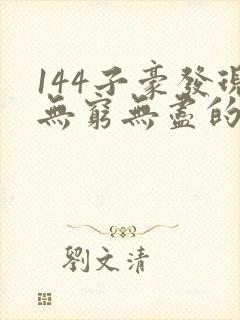 144子豪發現
無窮無盡的
劉文清